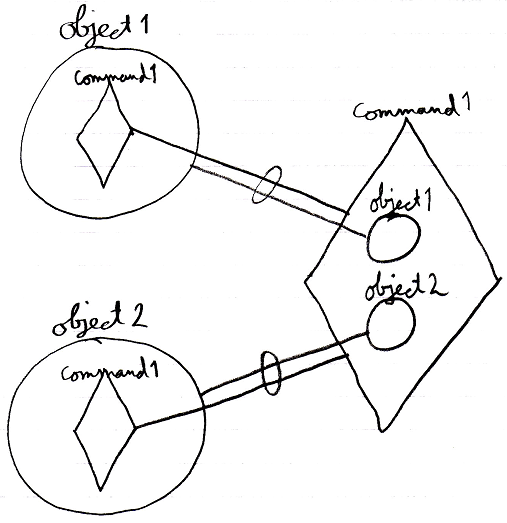 object 1
command1
command1
object1
object 2
object 2
command1